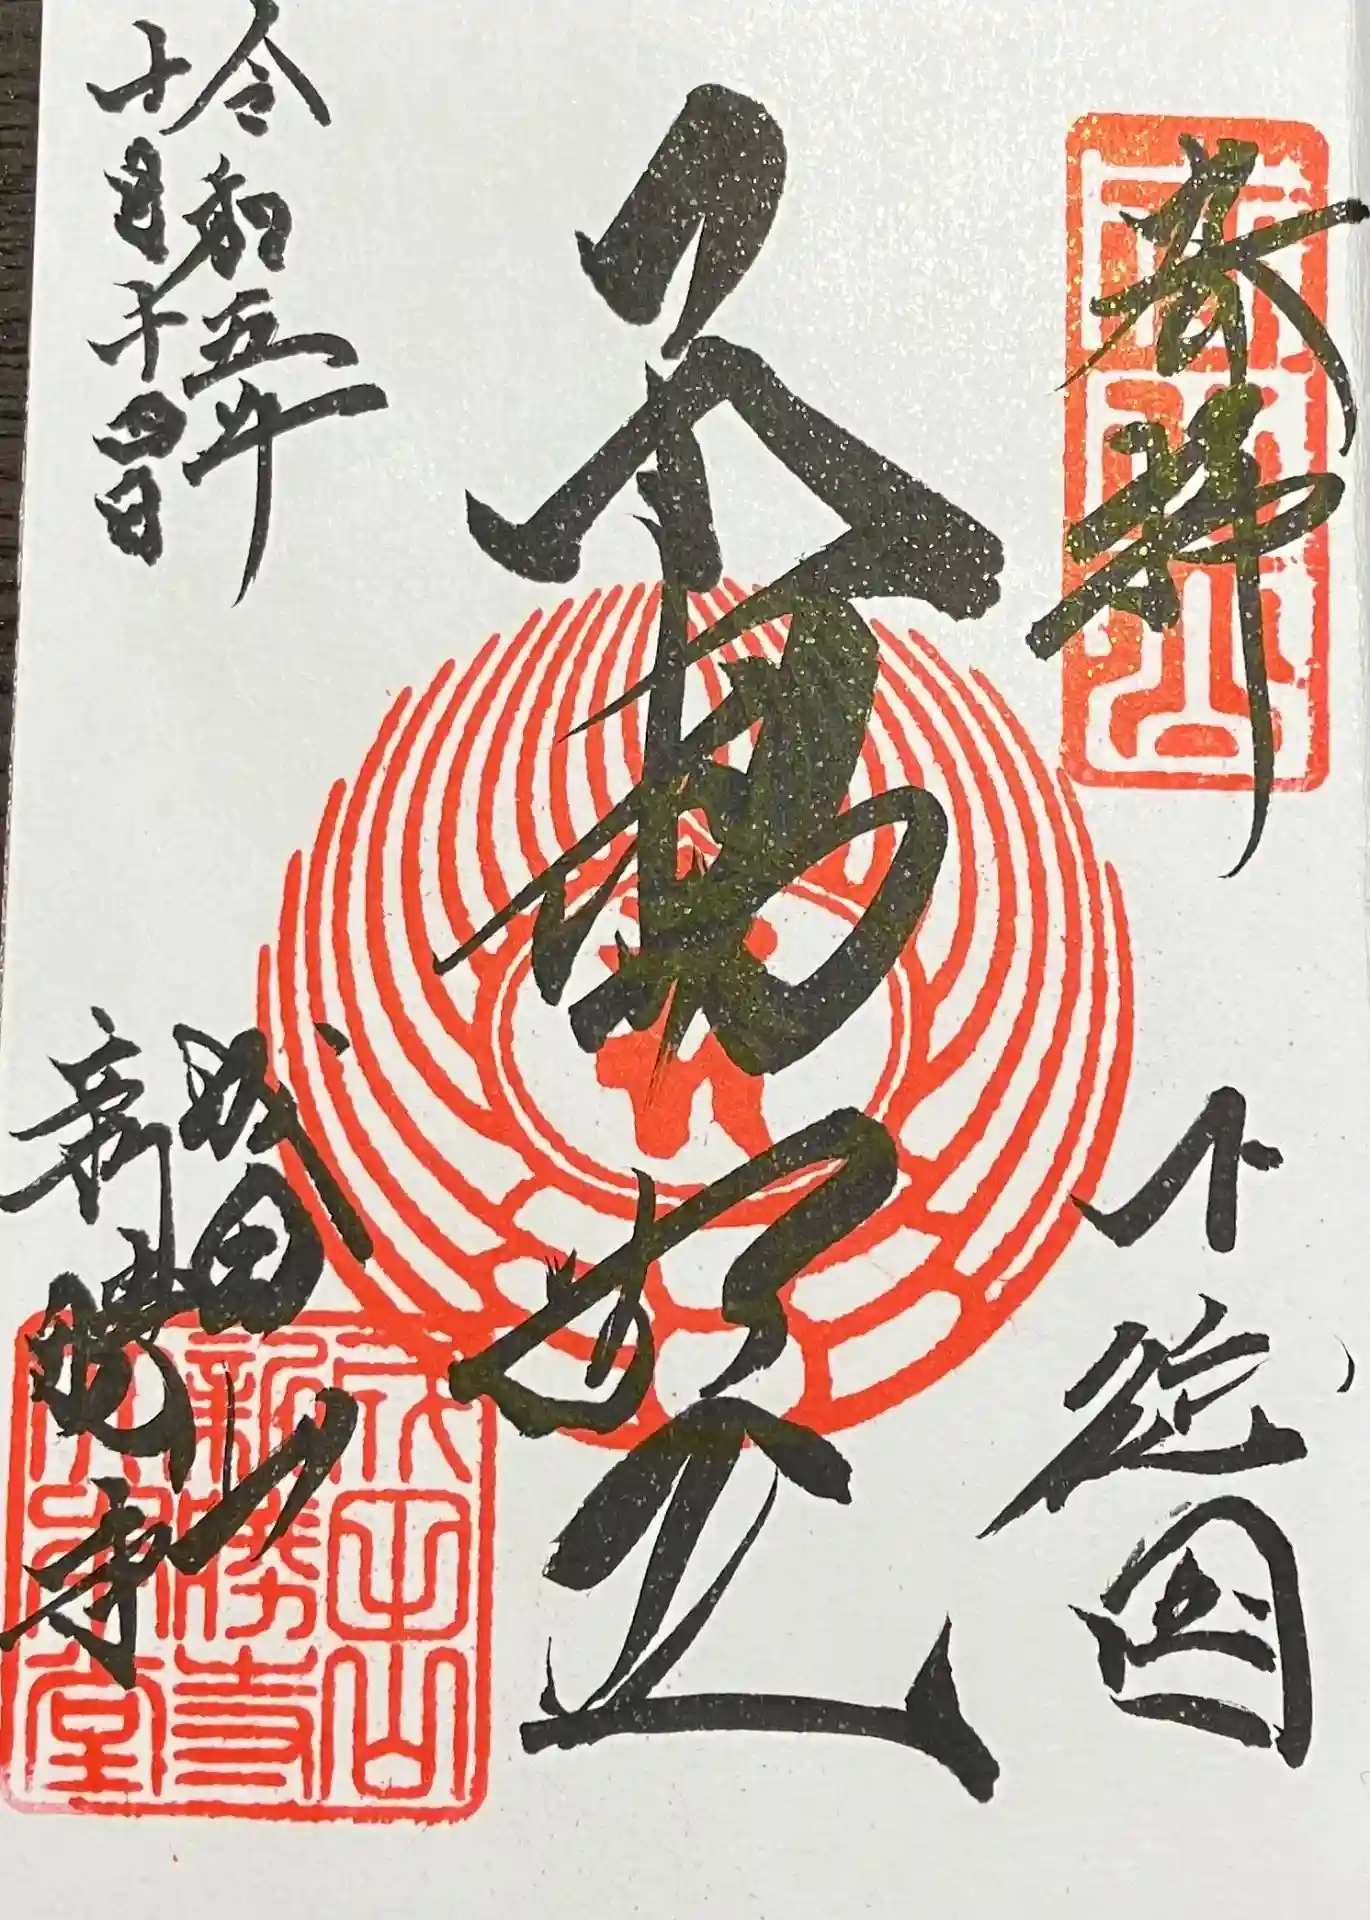 奉拝
下総国
不動明王
令和五年
十月十四日
成田山
新勝寺
成田山
新勝寺
大本堂